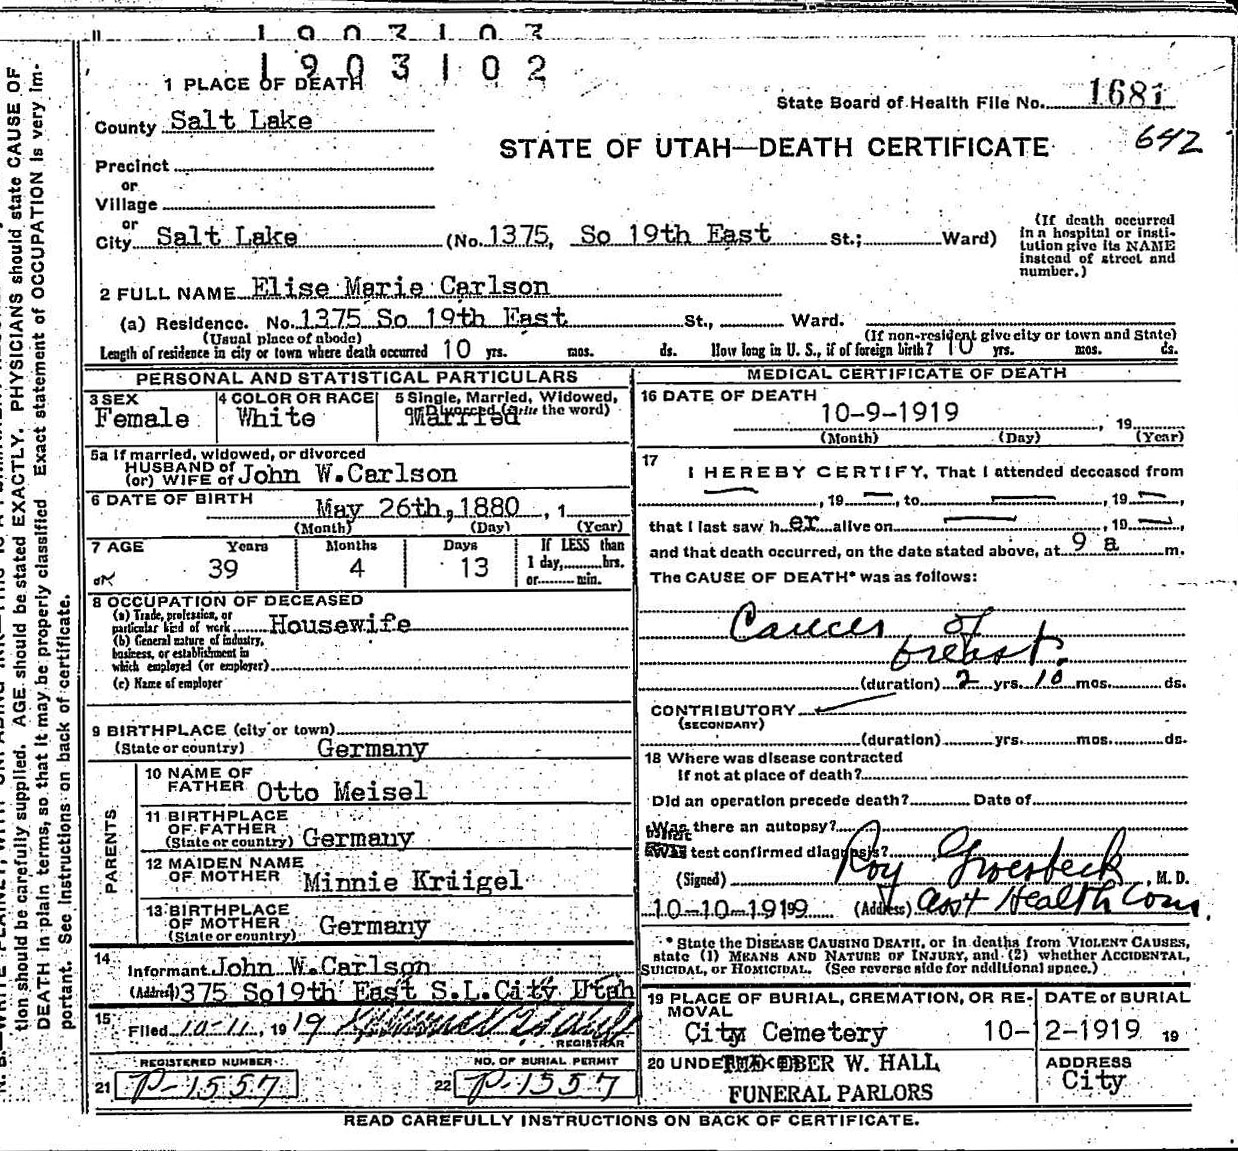 1903103
1903102
1 PLACE OF DEATH
State Board of Health File No. 1681
County Salt Lake
642
STATE OF UTAH—DEATH CERTIFICATE
Precinct
or
Village
or
City Salt Lake (No. 1375, So 19th East St.; Ward)
(If death occurred in a hospital or institution give its NAME instead of street and number.)
2 FULL NAME Elise Marie Carlson
(a) Residence. No. 1375 So 19th East St., Ward.
(Usual place of abode) (If non-resident give city or town and State)
Length of residence in city or town where death occurred 10 yrs. mos. ds. How long in U. S., if of foreign birth? 10 yrs. mos. ds.
PERSONAL AND STATISTICAL PARTICULARS
3 SEX
Female
4 COLOR OR RACE
White
5 Single, Married, Widowed,
or Divorced (write the word)
Married
5a If married, widowed, or divorced
HUSBAND of
(or) WIFE of John W.Carlson
6 DATE OF BIRTH
May 26th, 1880 , 1
(Month) (Day) (Year)
7 AGE Years Months Days If LESS than
1 day, hrs.
or min.
39 4 13
8 OCCUPATION OF DECEASED
(a) Trade, profession, or
particular kind of work Housewife
(b) General nature of industry,
business, or establishment in
which employed (or employer)
(c) Name of employer
9 BIRTHPLACE (city or town)
(State or country) Germany
PARENTS
10 NAME OF
FATHER Otto Meisel
11 BIRTHPLACE
OF FATHER
(State or country) Germany
12 MAIDEN NAME
OF MOTHER Minnie Kriigel
13 BIRTHPLACE
OF MOTHER
(State or country) Germany
14
Informant John W.Carlson
(Address) 1375 So19th East S.L.City Utah
15
Filed 10-11, 1919
REGISTRAR
REGISTERED NUMBER
21 P-1557
NO. OF BURIAL PERMIT
22 P-1557
MEDICAL CERTIFICATE OF DEATH
16 DATE OF DEATH
10-9-1919 , 19
(Month) (Day) (Year)
17
I HEREBY CERTIFY, That I attended deceased from
— , 19 — , to — , 19 — ,
that I last saw h er alive on — , 19 — ,
and that death occurred, on the date stated above, at 9 a m.
The CAUSE OF DEATH* was as follows:
Cancer of
breast.
(duration) 2 yrs. 10 mos. ds.
CONTRIBUTORY
(SECONDARY)
(duration) yrs. mos. ds.
18 Where was disease contracted
If not at place of death?
Did an operation precede death? Date of
Was there an autopsy?
test confirmed diagnosis?
(Signed) Roy Groesbeck , M. D.
10-10-1919 (Address) asst Health Com.
* State the DISEASE CAUSING DEATH, or in deaths from VIOLENT CAUSES,
state (1) MEANS AND NATURE OF INJURY, and (2) whether ACCIDENTAL,
SUICIDAL, or HOMICIDAL. (See reverse side for additional space.)
19 PLACE OF BURIAL, CREMATION, OR REMOVAL
City Cemetery
DATE of BURIAL
10-12-1919 19
20 UNDERTAKER W. HALL
FUNERAL PARLORS
ADDRESS
City
READ CAREFULLY INSTRUCTIONS ON BACK OF CERTIFICATE.
tion should be carefully supplied. AGE should be stated EXACTLY. PHYSICIANS should state CAUSE OF
DEATH in plain terms, so that it may be properly classified. Exact statement of OCCUPATION is very im-
portant. See Instructions on back of certificate.